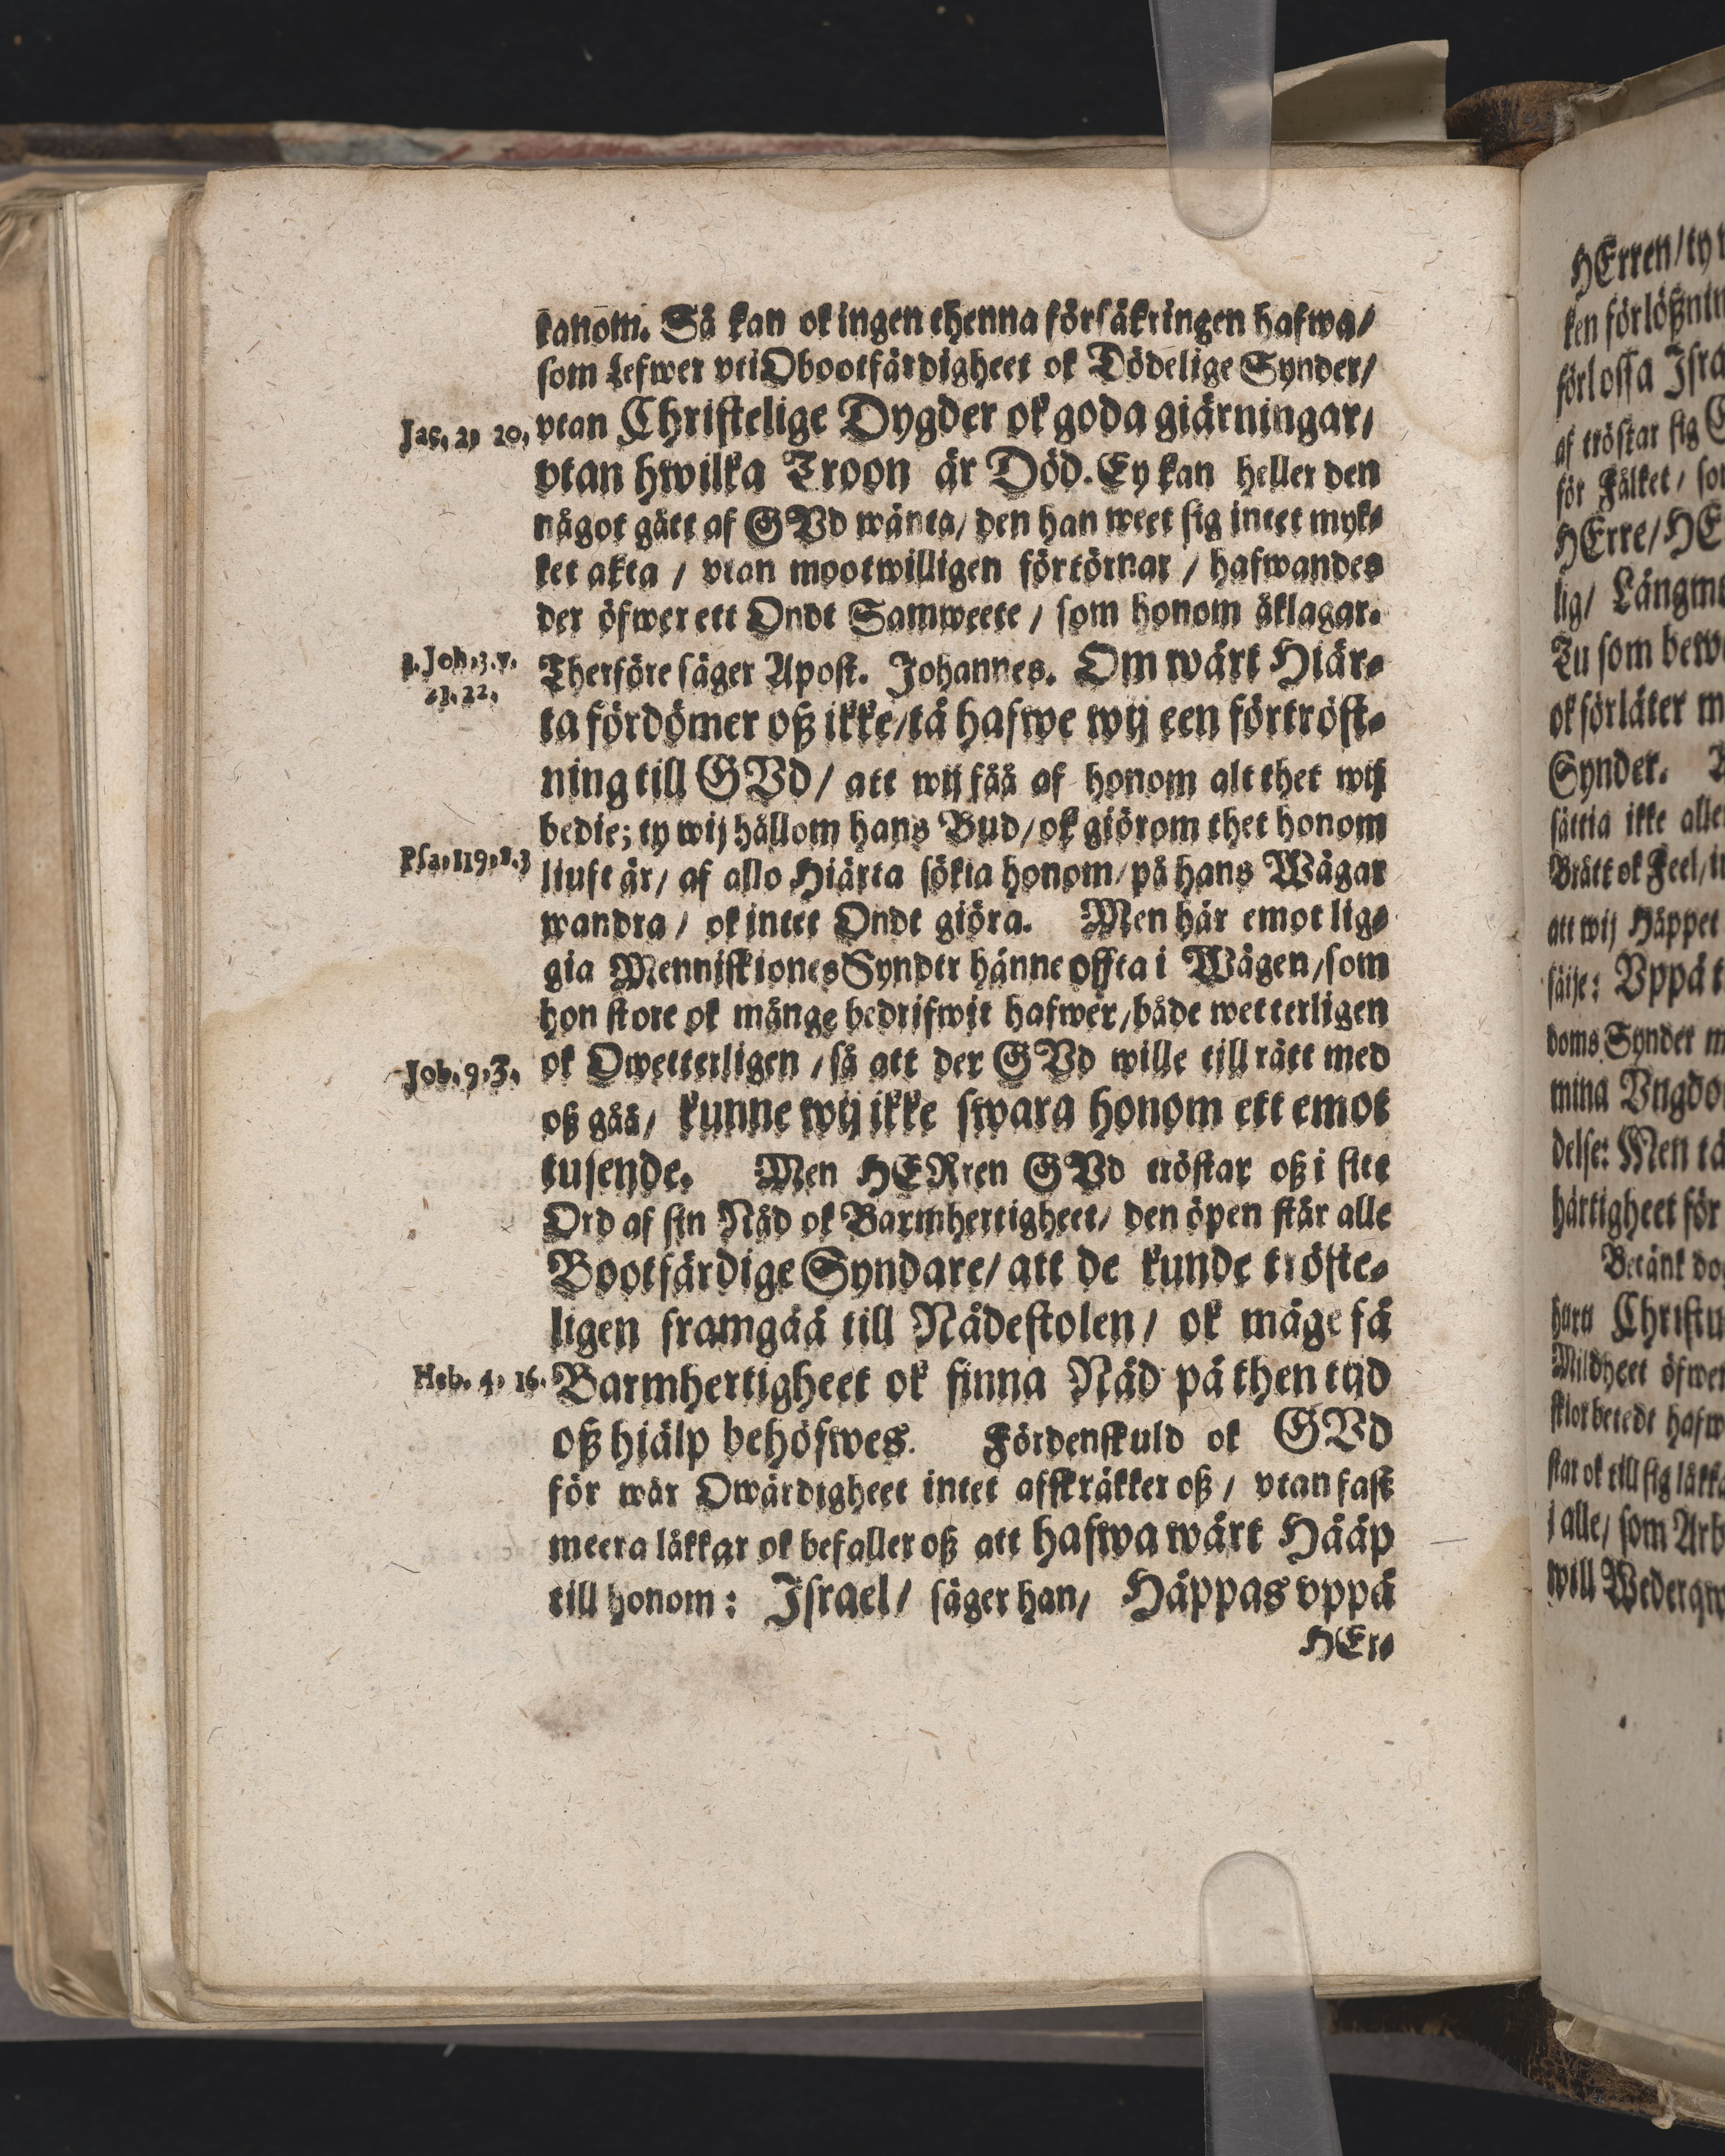 kanom. Så kan ok ingen thenna försäkringen hafwa/
som Lefwer vti Obootfärdigheet ok Dödelige Synder/
Jac. 2, 20, vtan Christelige Dygder ok goda giärningar/
vtan hwilka Troon är Död. Ey kan heller den
något gätt af GVd wänta/ den han weet sig intet myk-
ket akta / vtan mootwilligen förtörnar / hafwandes
der öfwer ett Ondt Samweete / som honom åklagar.
1. Joh. 3. v. 21. 22. Therföre säger Apost. Johannes. Om wårt Hiär-
ta fördömer oß ikke/ tå hafwe wij een förtröst-
ning till GVd/ att wij fåå af honom alt thet wij
bedie; ty wij hållom hans Bud/ ok giörom thet honom
Psa. 119, 2. 3 liuft är/ af allo Hiärta sökia honom/ på hans Wägar
wandra / ok intet Ondt giöra. Men här emot lig-
gia Menniskiones Synder hänne offta i Wägen/ som
hon store ok månge bedrifwit hafwer/ både wetterligen
Job. 9, 3, ok Owetterligen / så att der GVd wille till rätt med
oß gåå/ kunne wij ikke swara honom ett emot
tusende. Men HERren GVd tröstar oß i sitt
Ord af sin Nåd ok Barmhertigheet/ den öpen står alle
Bootfärdige Syndare/ att de kunde tröste-
ligen framgåå till Nådestolen/ ok måge få
Heb. 4, 16. Barmhertigheet ok finna Nåd på then tijd
oß hiälp behöfwes. Fördenskuld ok GVd
för wår Owärdigheet intet affskräkker oß / vtan fast
meera låkkar ok befaller oß att hafwa wårt Hååp
till honom: Israel/ säger han/ Håppas vppå
HEr-
HErren/ ty
ken förlößnin
förlossa Isra
af tröstar sig
för Fålket/ so
HErre/ HE
lig/ Långm
Tu som bew
ok förlåter m
Synder.
sättia ikke alle
Brått ok Feel/
att wij Håppet
säije: Vppå
doms Synder m
mina Vngdo
delse: Men tå
härtigheet för
Betänk do
huru Christu
Mildheet öfwer
skior betedt hafw
star ok till sig låkk
i alle/ som Arb
will Wederqw